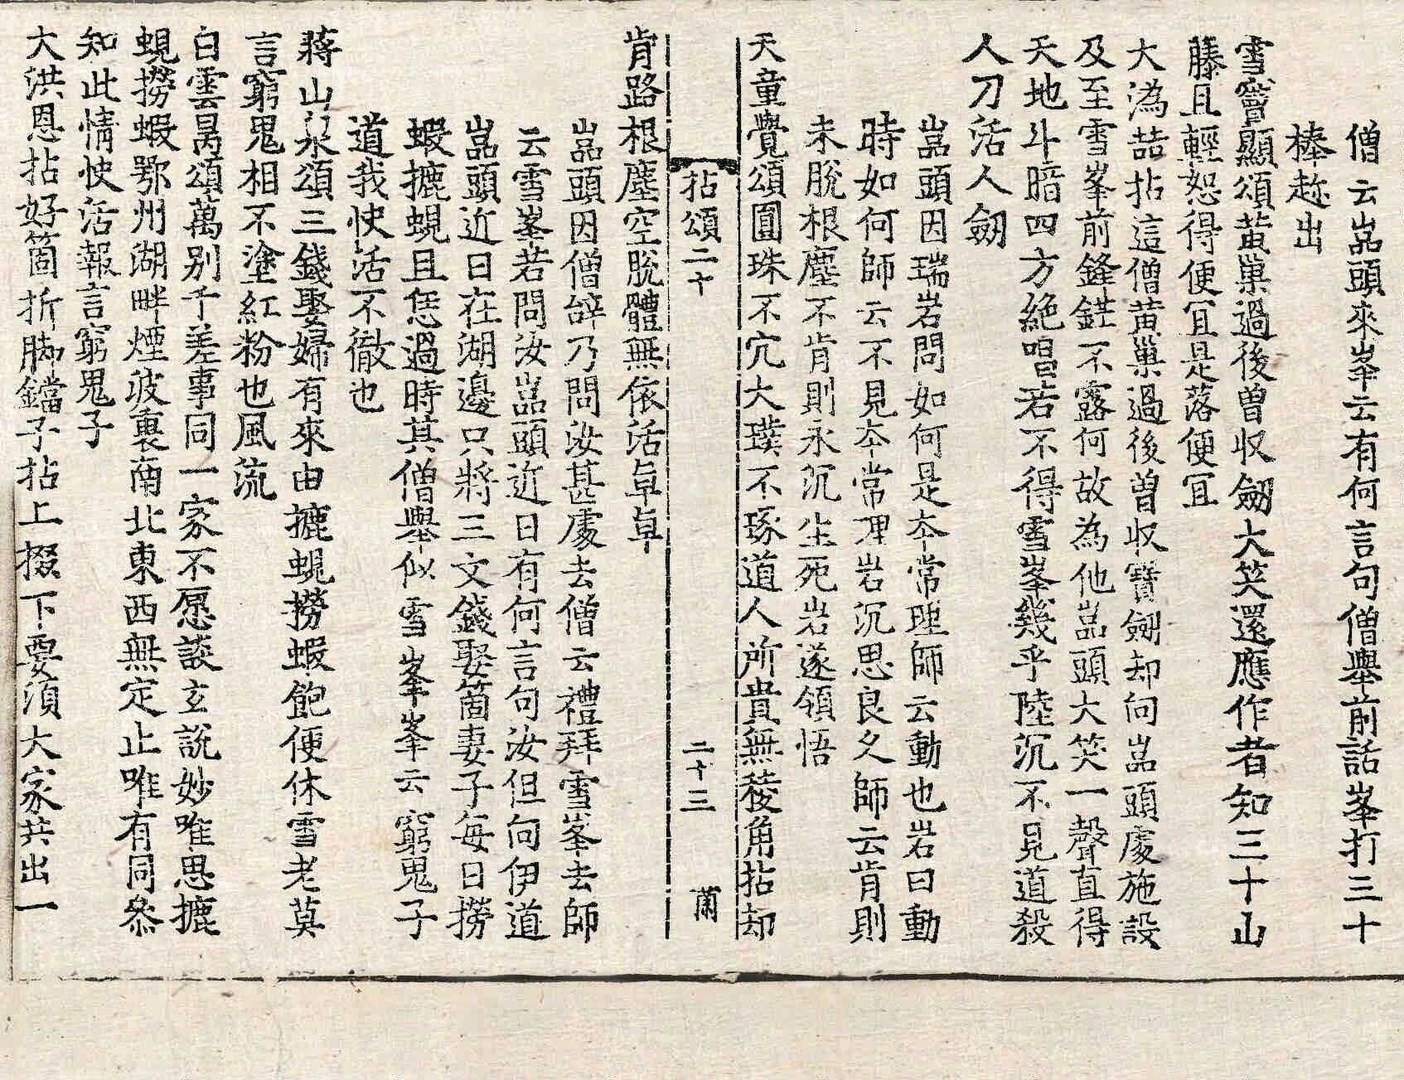 僧云嵓頭來峯云有何言句僧舉前話峯打三十
棒趂出
雪竇顯頌黃巢過後曽収劒大笑還應作者知三十山
藤且輕恕得便冝是落便冝
大溈喆拈這僧黃巢過後曽収寶劒却向嵓頭處施設
及至雪峯前鋒鋩不露何故為他嵓頭大笑一聲直得
天地斗暗四方絶唱若不得雪峯幾乎陸沉不見道殺
人刀活人劒
嵓頭因瑞岩問如何是夲常理師云動也岩曰動
時如何師云不見夲常理岩沉思良久師云肯則
未脫根塵不肯則永沉生死岩遂領悟
天童覺頌圓珠不穴大璞不琢道人所貴無稜角拈却
拈頌二十 二十三
肯路根塵空脫體無依活卓卓
嵓頭因僧辝乃問汝甚處去僧云禮拜雪峯去師
云雪峯若問汝嵓頭近日有何言句汝但向伊道
嵓頭近日在湖邊只將三文錢娶箇妻子每日撈
蝦摝蜆且恁過時其僧舉似雪峯峯云窮鬼子
道我快活不徹也
蔣山泉頌三錢娶婦有來由摝蜆撈蝦飽便休雪老莫
言窮鬼相不塗紅粉也風流
白雲昺頌萬别千差事同一家不愿談玄說妙唯思摝
蜆撈蝦鄂州湖畔煙波裏南北東西無定止唯有同叅
知此情快活報言窮鬼子
大洪恩拈好箇折脚鐺子拈上掇下要湏大家共出一